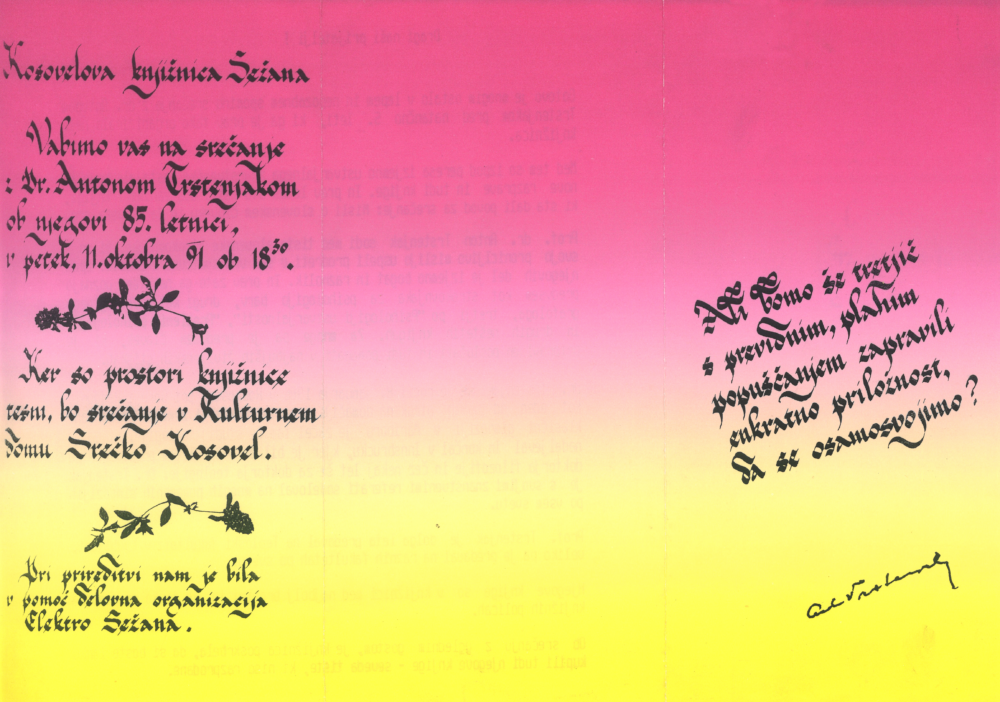 Kosovelova knjižnica Sežana
Vabimo vas na srečanje
z Dr. Antonom Trstenjakom
ob njegovi 85. letnici,
v petek, 11. oktobra 91 ob 18³⁰.
Ker so prostori knjižnice
tesni, bo srečanje v Kulturnem
domu Srečko Kosovel.
Pri prireditvi nam je bila
v pomoč delovna organizacija
Elektro Sežana.
Ali bomo še tretjič
s previdnim, plahim
popuščanjem zapravili
enkratno priložnost,
da se osamosvojimo?